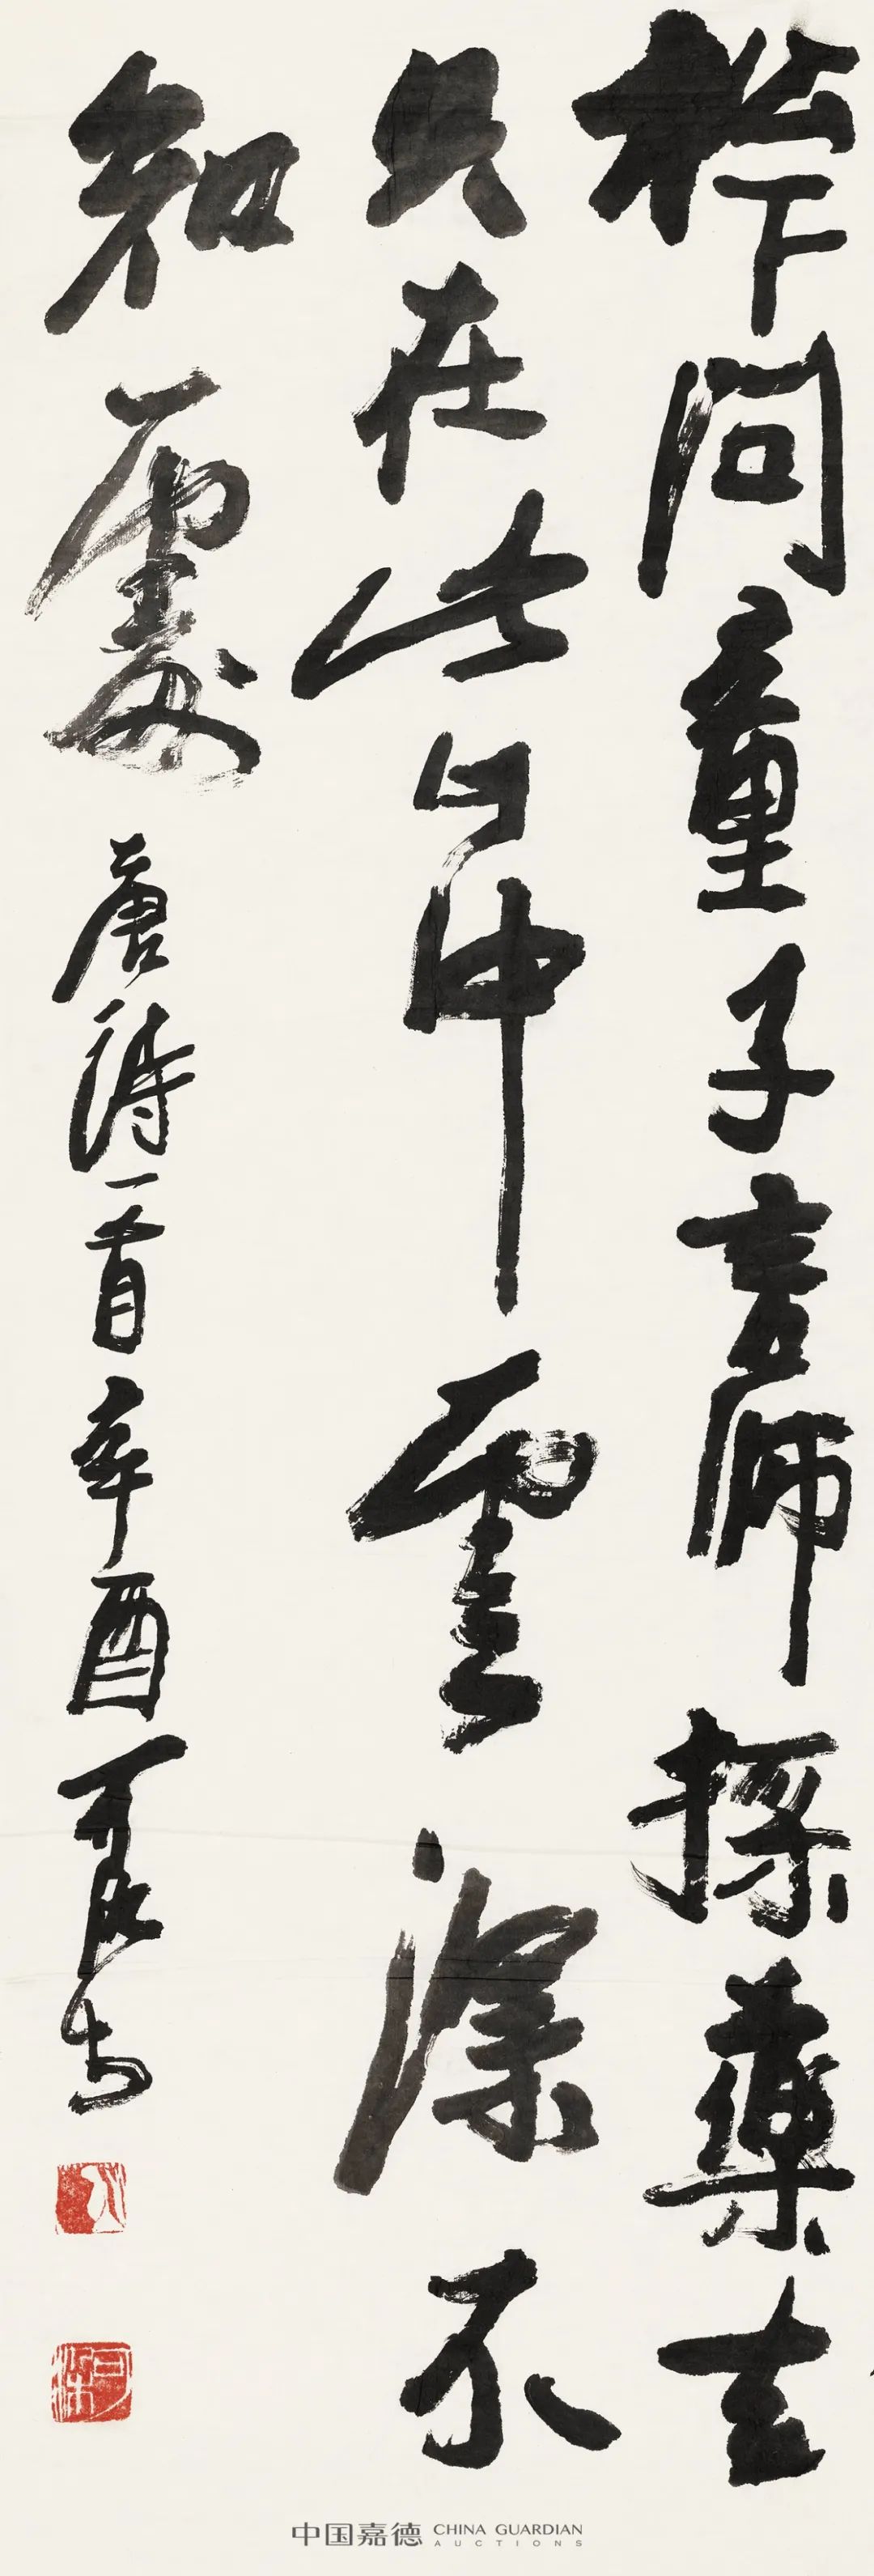 松下问童子言师採藥去
只在此山中雲深不
知處 唐詩一首 辛酉 可染書
中国嘉德 CHINA GUARDIAN
AUCTIONS